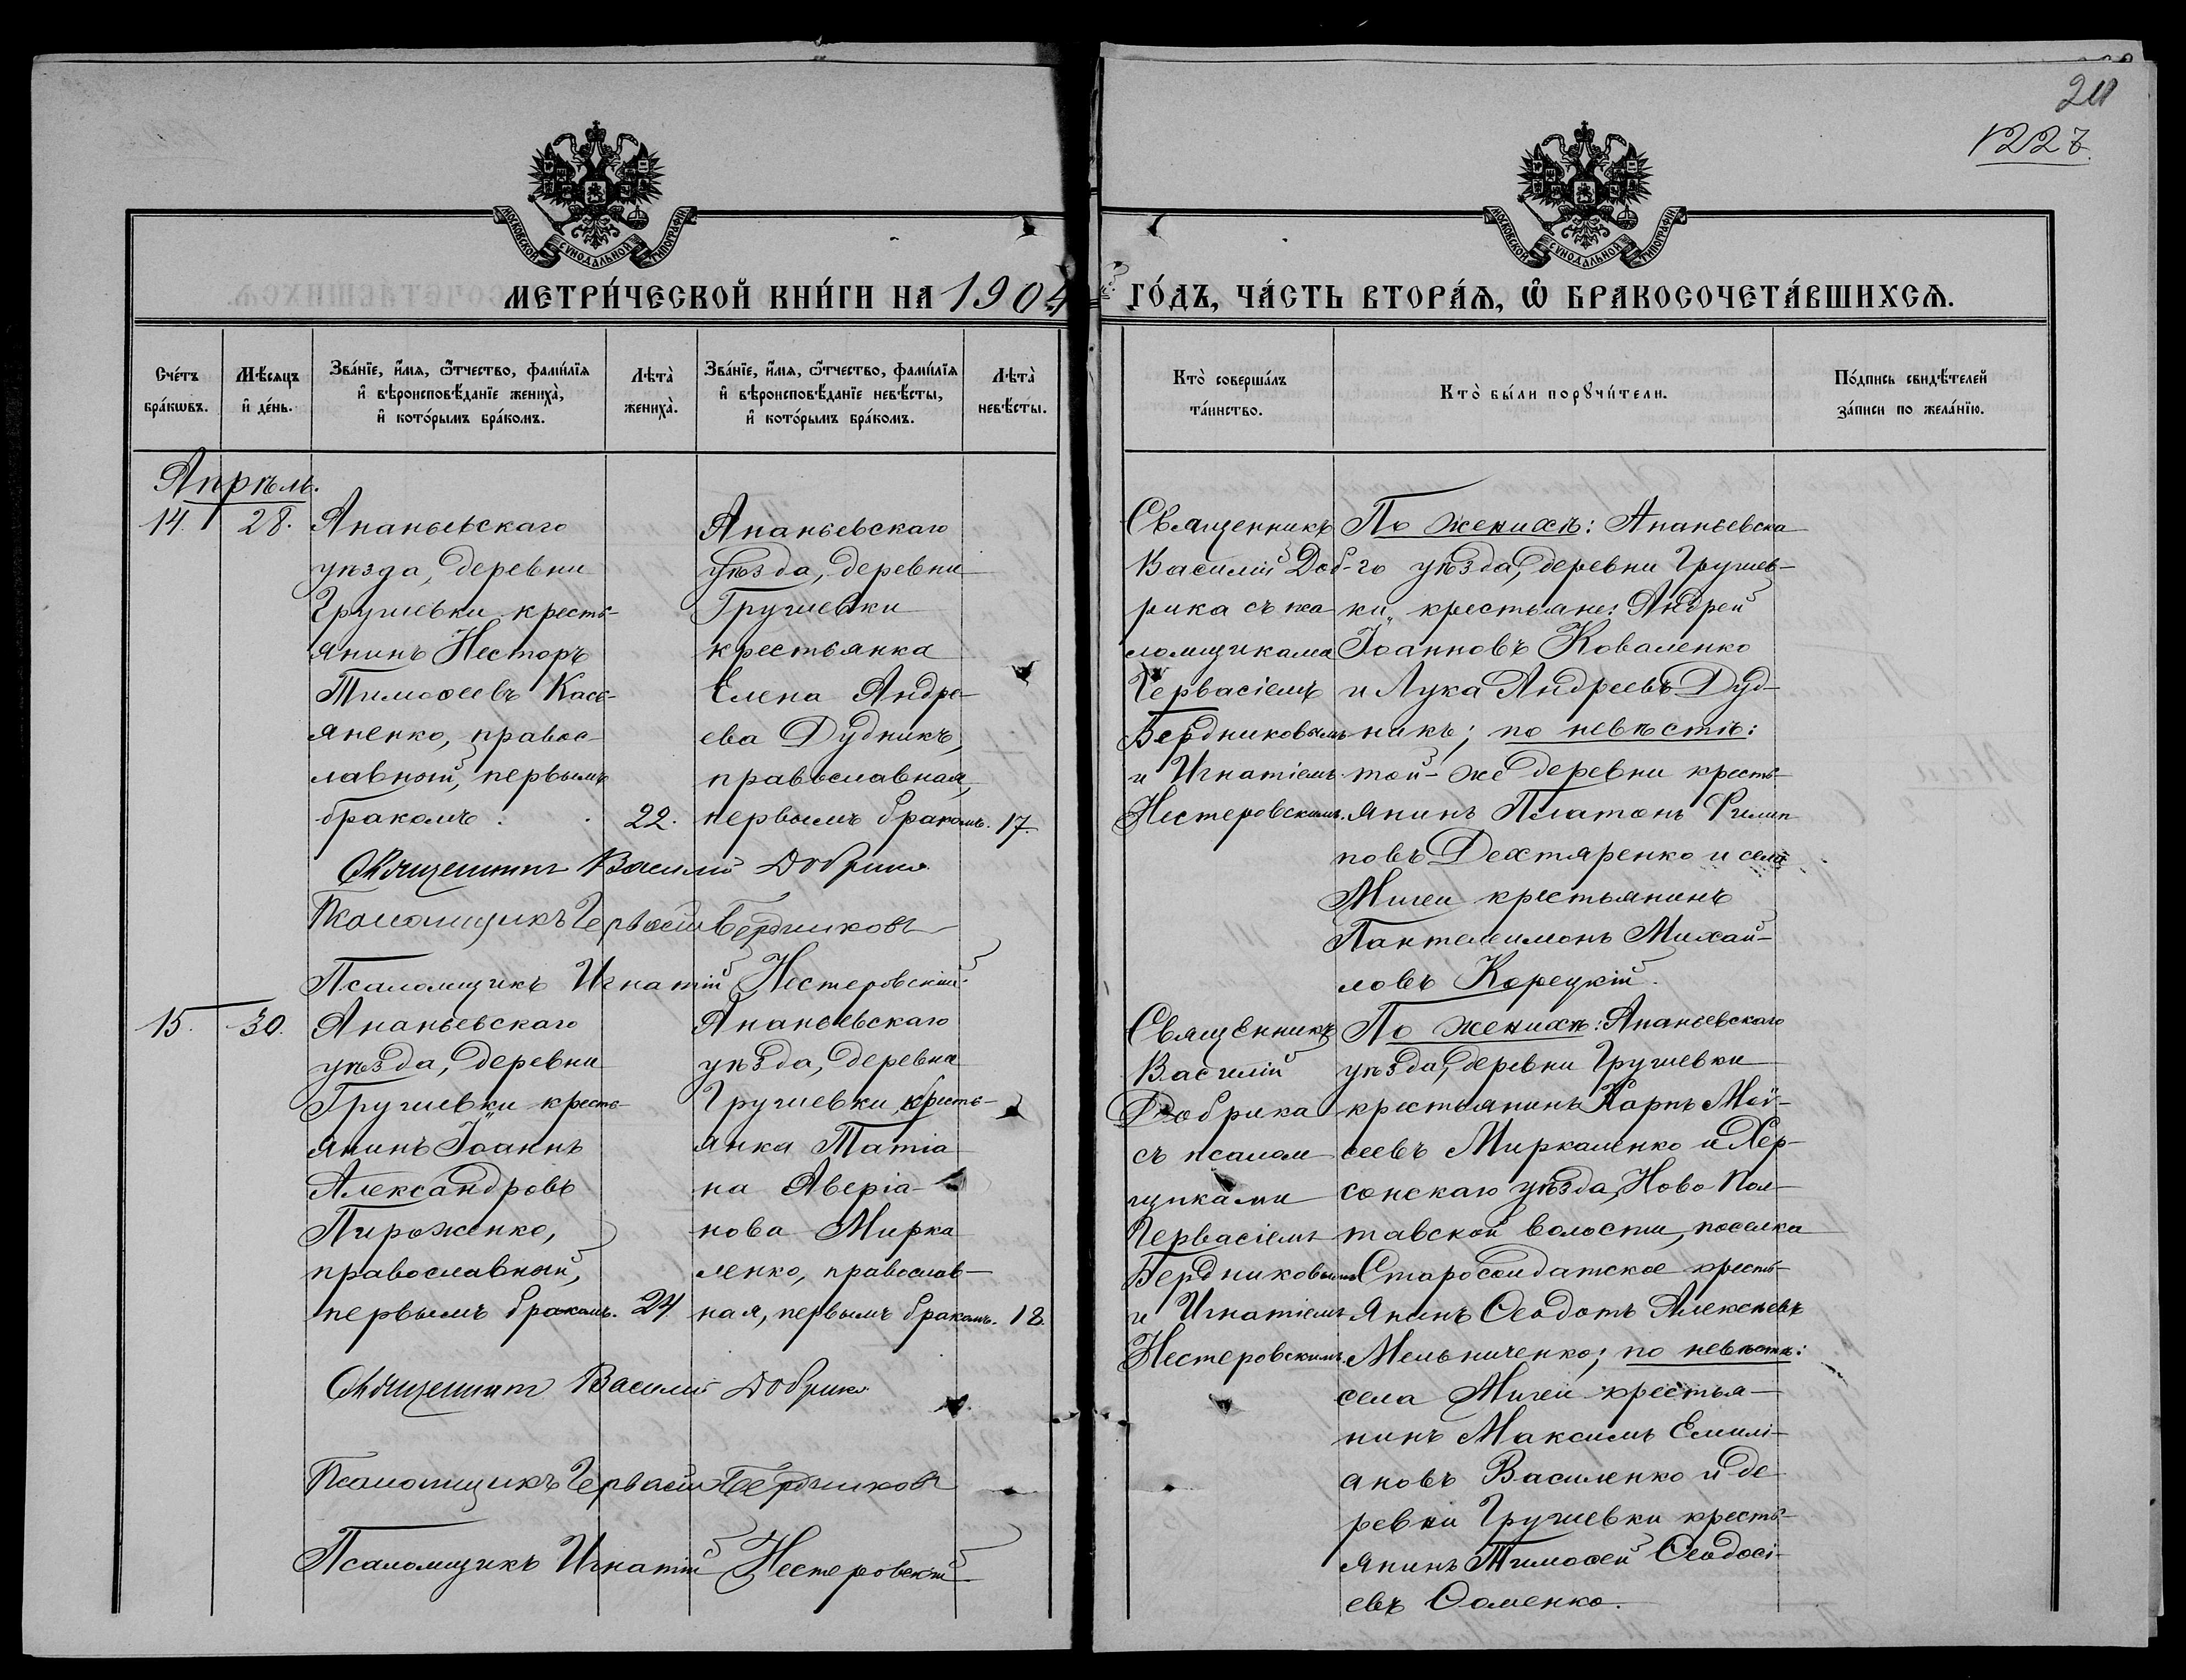 211
1227.
МОСКОВСКОЙ СѴНОДАЛЬНОЙ ТИПОГРАФІИ
МОСКОВСКОЙ СѴНОДАЛЬНОЙ ТИПОГРАФІИ
МЕТРИ́ЧЕСКОЙ КНИ́ГИ НА 1904 ГО́ДЪ, ЧА́СТЬ ВТОРА́Я, Ѡ БРАКОСОЧЕТА́ВШИХСЯ.
Сче́тъ
бра́кѡвъ.
Мѣ́сяцъ
и҆ де́нь.
Зва́нїе, и҆́мя, ѻ҆́тчество, фами́лїя
и҆ вѣроисповѣ́данїе жениха̀,
и҆ кото́рымъ бра́комъ.
Лѣта̀
жениха̀.
Зва́нїе, и҆́мя, ѻ҆́тчество, фами́лїя
и҆ вѣроисповѣ́данїе невѣ́сты,
и҆ кото́рымъ бра́комъ.
Лѣта̀
невѣ́сты.
Кто̀ соверша́лъ
та́инство.
Кто̀ бы́ли порꙋчи́тели.
По́дпись свидѣ́телей
за́писи по жела́нїю.
Апрѣль.
14. 28.
Ананьевскаго
уѣзда, деревни
Грушевки кресть-
янинъ Несторъ
Тимоѳеевъ Кась-
яненко, правос-
лавный, первымъ
бракомъ. 22.
Ананьевскаго
уѣзда, деревни
Грушевки
крестьянка
Елена Андре-
ева Дудникъ,
православная,
первымъ бракомъ. 17.
Священникъ
Василій Доб-
рика съ пса
ломщиками
Гервасіемъ
Бердниковымъ
и Игнатіемъ
Нестеровскимъ.
По женихѣ: Ананьевска
го уѣзда, деревни Грушев-
ки, крестьяне: Андрей
Іоанновъ Коваленко
и Лука Андреевъ Дуд-
никъ; по невѣстѣ:
той-же деревни кресть-
янинъ Платонъ Филип
повъ Дехтяренко и села
Мигеи крестьянинъ
Пантелеимонъ Михай-
ловъ Корецкій.
Священникъ Василій Добрика
Псаломщикъ Гервасій Бердниковъ
Псаломщикъ Игнатій Нестеровскій
15. 30.
Ананьевскаго
уѣзда, деревни
Грушевки кресть-
янинъ Іоаннъ
Александровъ
Пироженко,
православный,
первымъ бракомъ. 24.
Ананьевскаго
уѣзда, деревни
Грушевки, кресть-
янка Татіа
на Аверіа-
нова Мирка
ленко, православ-
ная, первымъ бракомъ. 18.
Священникъ
Василій
Добрика
съ псалом
щиками
Гервасіемъ
Бердниковымъ
и Игнатіемъ
Нестеровскимъ.
По женихѣ: Ананьевскаго
уѣзда, деревни Грушевки
крестьянинъ Карпъ Мой-
сеевъ Миркаленко и Хер-
сонскаго уѣзда, Ново Пол-
тавской волости, поселка
Старосолдатское кресть-
янинъ Ѳеодотъ Алексѣевъ
Мельниченко; по невѣстѣ:
села Мигеи крестья-
нинъ Максимъ Емилі-
ановъ Василенко и де
ревни Грушевки кресть-
янинъ Тимоѳей Ѳеодосі-
евъ Ѳоменко.
Священникъ Василій Добрика
Псаломщикъ Гервасій Бердниковъ
Псаломщикъ Игнатій Нестеровскій